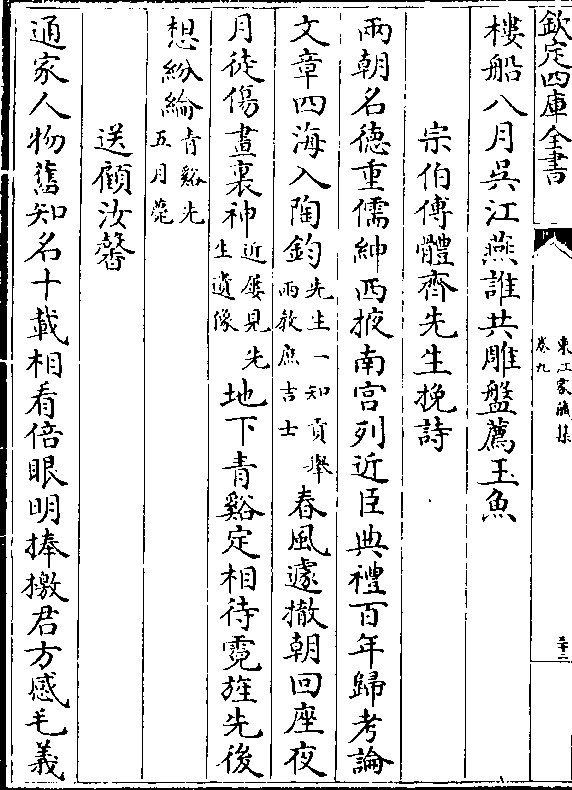 欽定四庫全書
東江家藏集
卷九
二十三
樓船八月吳江燕誰共雕盤薦玉魚
宗伯傅體齊先生挽詩
兩朝名德重儒紳西掖南宫列近臣典禮百年歸考論
文章四海入陶鈞先生一知貢舉兩教庶吉士春風遽撤朝回座夜
月徒傷畫裏神近屡見先生遺像地下青谿定相待霓旌先後
想紛綸青谿先五月薨
送顧汝馨
通家人物舊知名十載相看倍眼明捧檄君方感毛義